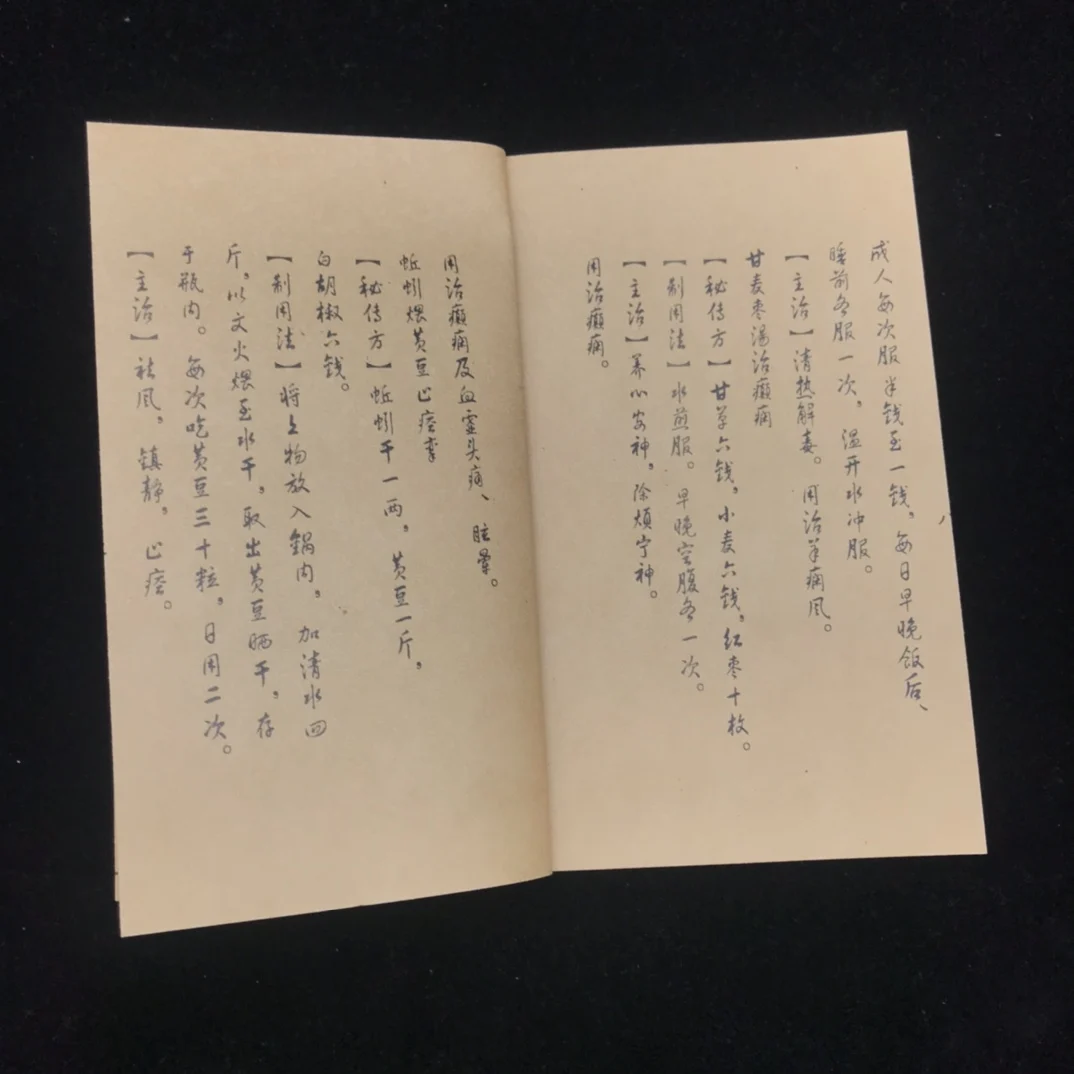 成人每次服半钱至一钱，每日早晚饭后、
睡前各服一次，温开水冲服。
【主治】清热解毒。用治羊痫风。
甘麦枣汤治癫痫
【秘传方】甘草六钱，小麦六钱，红枣十枚。
【制用法】水煎服。早晚空腹各一次。
【主治】养心安神，除烦宁神。
用治癫痫。
用治癫痫及血虚头痛、眩晕。
蚯蚓煨黄豆止痉挛
【秘传方】蚯蚓干一两，黄豆一斤，
白胡椒六钱。
【制用法】将上物放入锅内，加清水四
斤，以文火煨至水干，取出黄豆晒干，存
于瓶内。每次吃黄豆三十粒，日用二次。
【主治】祛风，镇静，止痉。